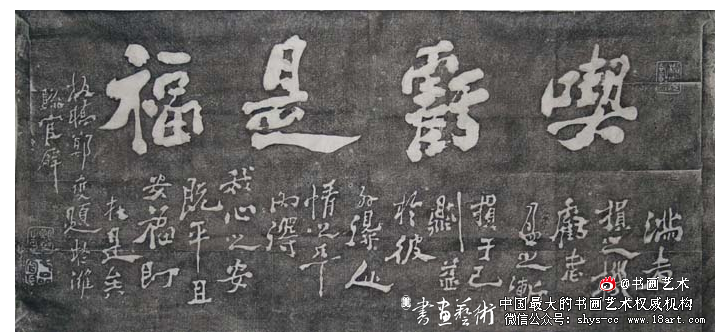 喫虧是福
滿者
損之機
虧者
盈之漸
損于己
則益
於彼
外得人
情之平
內得
我心之安
既平且
安福即
在是矣
板橋鄭燮題於濰
縣官廨
@书画艺术
書畫藝術
中国最大的书画艺术权威机构
微信公众号：shys-cc www.18art.com